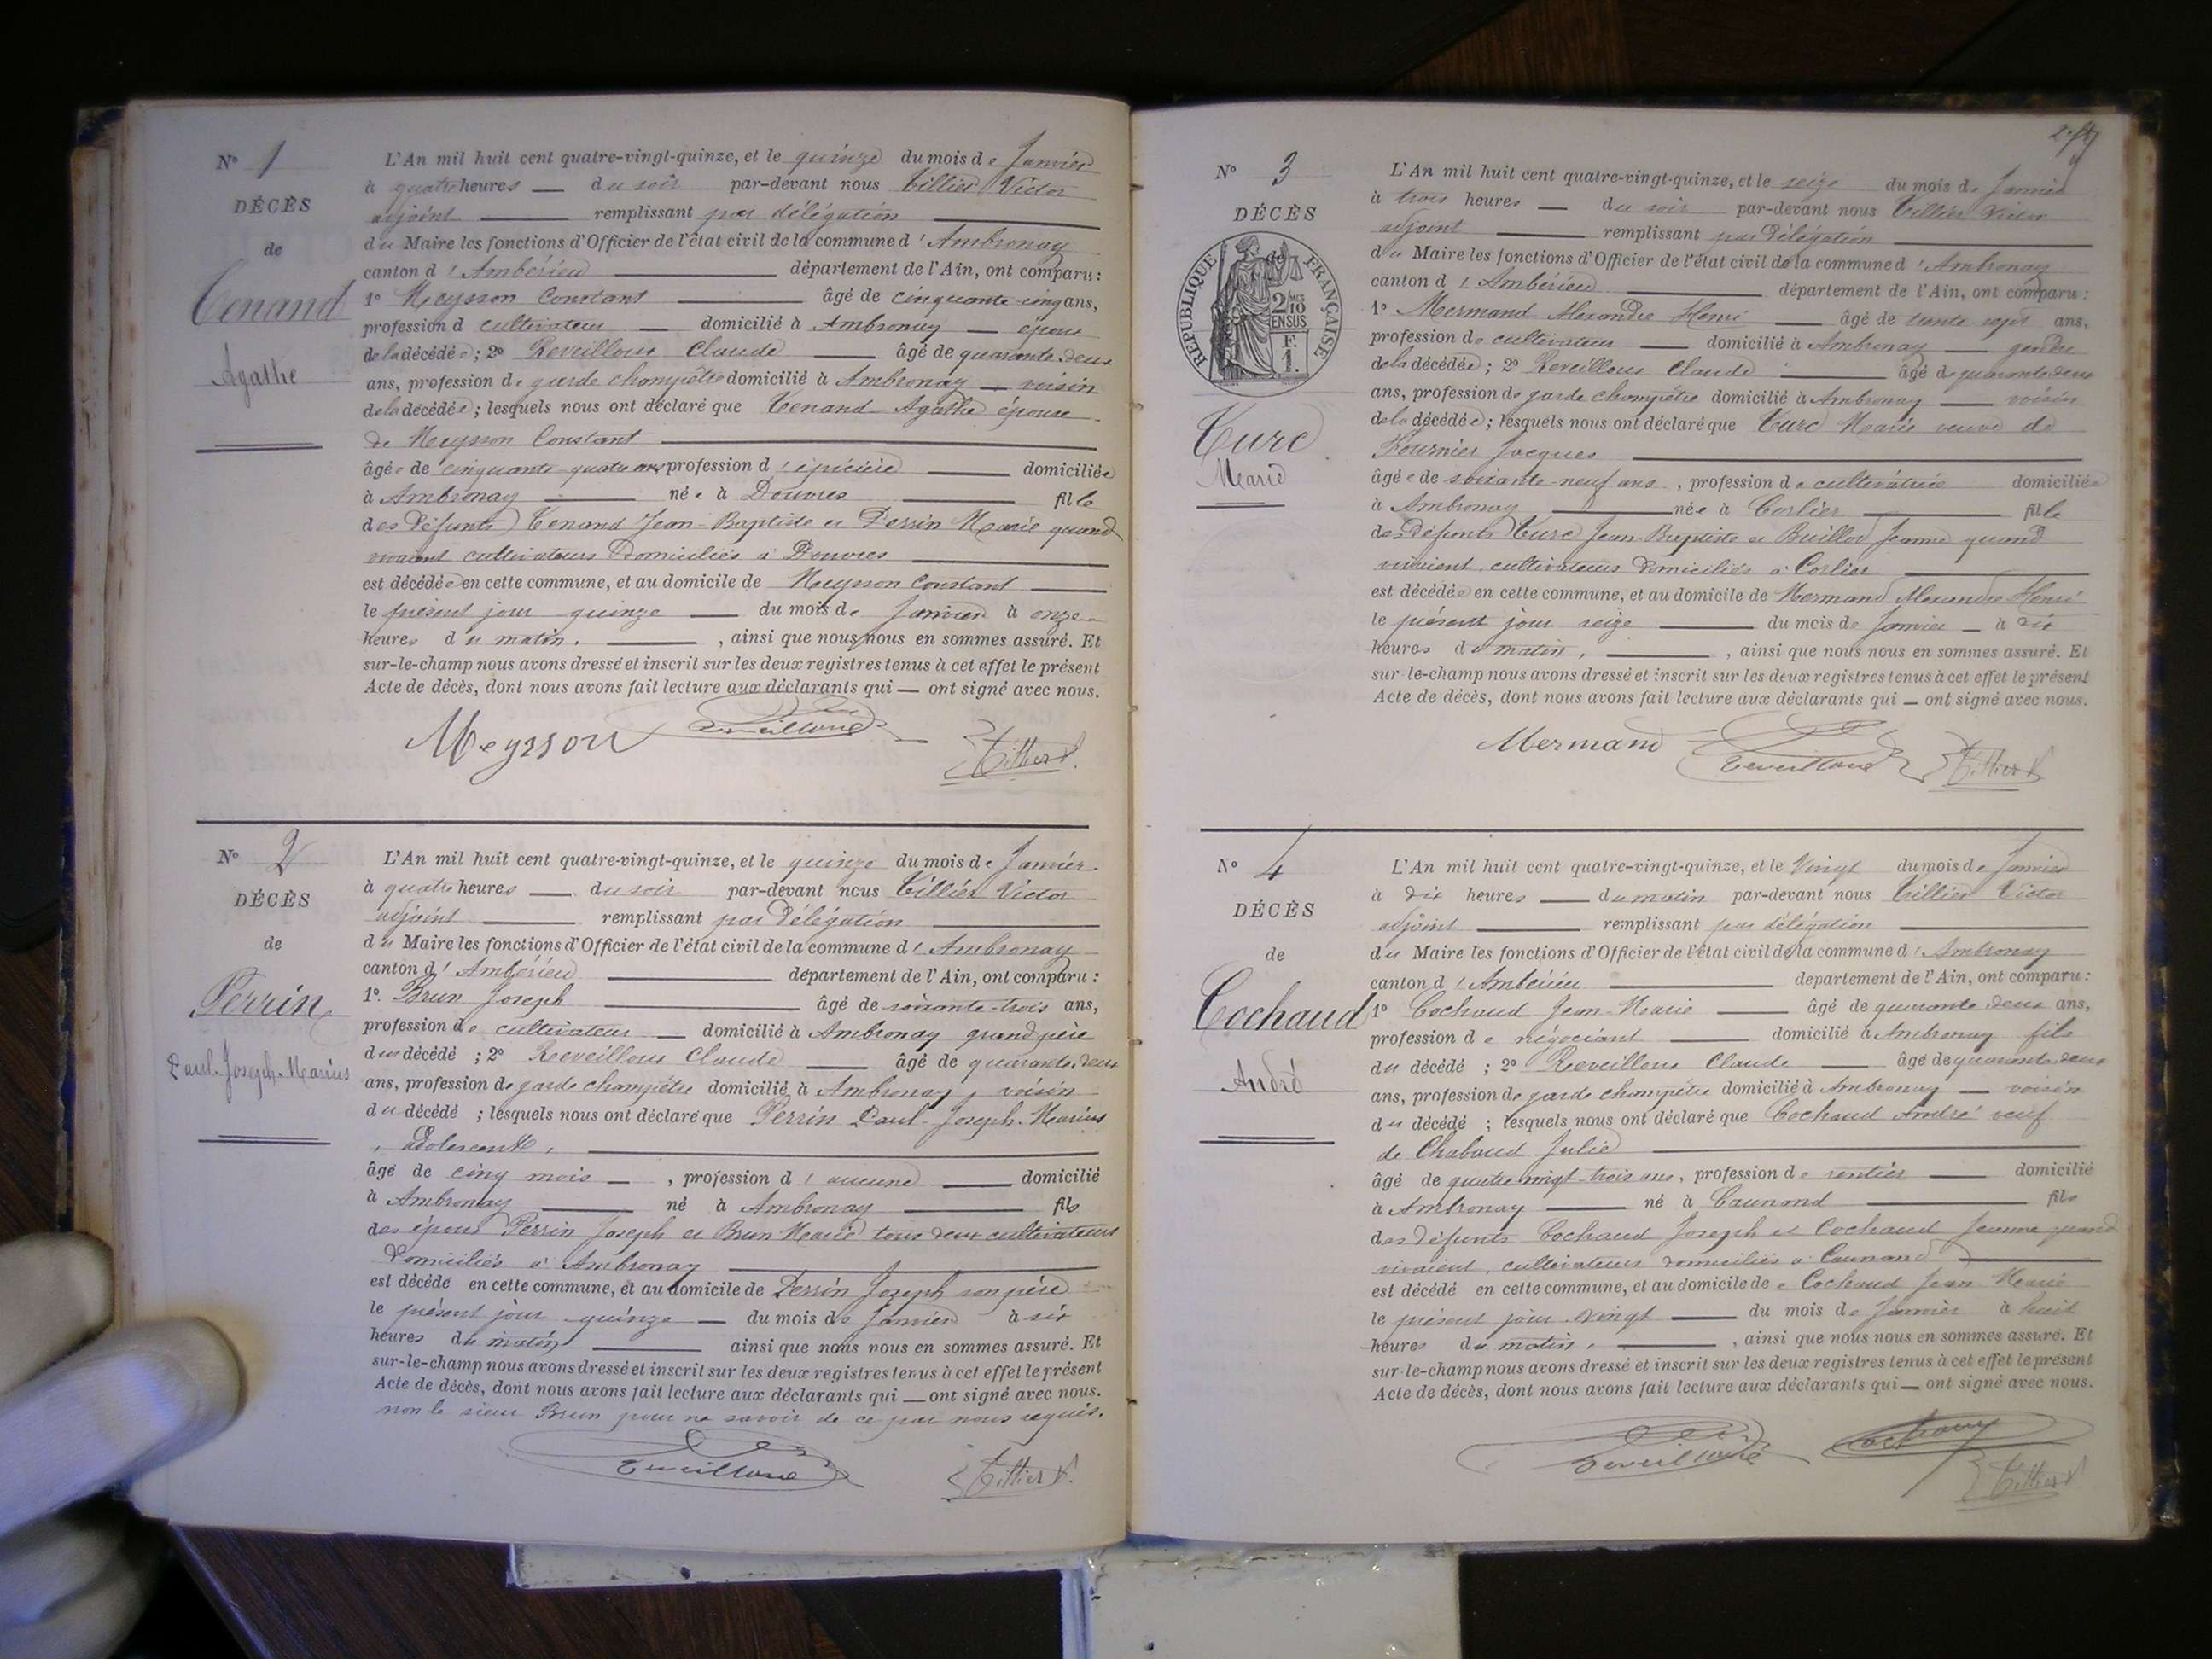 N° 1
DÉCÈS
de
Tenand
Agathe
L'An mil huit cent quatre-vingt-quinze, et le quinze du mois de Janvier
à quatre heures — du soir par-devant nous Tillier Victor
adjoint — remplissant par délégation —
du Maire les fonctions d'Officier de l'état civil de la commune d'Ambronay
canton d'Ambérieu — département de l'Ain, ont comparu :
1° Meysson Constant — âgé de cinquante-cinq ans,
profession d cultivateur — domicilié à Ambronay — époux
de la décédée ; 2° Reveilloux Claude — âgé de quarante-deux
ans, profession de garde champêtre domicilié à Ambronay — voisin
de la décédée ; lesquels nous ont déclaré que Tenand Agathe épouse
de Meysson Constant —
âgée de cinquante-quatre ans profession d'épicière — domiciliée
à Ambronay — née à Douvres — fille
des défunts Tenand Jean-Baptiste et Perrin Marie quand
vivaient cultivateurs domiciliés à Douvres —
est décédée en cette commune, et au domicile de Meysson Constant —
le présent jour quinze — du mois de Janvier à onze
heures du matin. — , ainsi que nous nous en sommes assuré. Et
sur-le-champ nous avons dressé et inscrit sur les deux registres tenus à cet effet le présent
Acte de décès, dont nous avons fait lecture aux déclarants qui — ont signé avec nous.
Meysson Reveilloux Tillier V.
N° 2
DÉCÈS
de
Perrin
Paul-Joseph-Marius
L'An mil huit cent quatre-vingt-quinze, et le quinze du mois de Janvier
à quatre heures — du soir par-devant nous Tillier Victor
adjoint — remplissant par délégation —
du Maire les fonctions d'Officier de l'état civil de la commune d'Ambronay
canton d'Ambérieu — département de l'Ain, ont comparu :
1° Brun Joseph — âgé de soixante-trois ans,
profession de cultivateur — domicilié à Ambronay grand père
du décédé ; 2° Reveilloux Claude — âgé de quarante-deux
ans, profession de garde champêtre domicilié à Ambronay, voisin
du décédé ; lesquels nous ont déclaré que Perrin Paul-Joseph-Marius
, adolescent, —
âgé de cinq mois — , profession d'aucune — domicilié
à Ambronay — né à Ambronay — fils
des époux Perrin Joseph et Brun Marie tous deux cultivateurs
domiciliés à Ambronay —
est décédé en cette commune, et au domicile de Perrin Joseph son père
le présent jour quinze — du mois de Janvier à six
heures du matin — ainsi que nous nous en sommes assuré. Et
sur-le-champ nous avons dressé et inscrit sur les deux registres tenus à cet effet le présent
Acte de décès, dont nous avons fait lecture aux déclarants qui — ont signé avec nous.
non le sieur Brun pour ne savoir de ce par nous requis.
Reveilloux Tillier V.
N° 3
DÉCÈS
de
RÉPUBLIQUE FRANÇAISE
2/10 EN SUS
F. 1.
Turc
Marie
L'An mil huit cent quatre-vingt-quinze, et le seize du mois de Janvier
à trois heures — du soir par-devant nous Tillier Victor
adjoint — remplissant par délégation —
du Maire les fonctions d'Officier de l'état civil de la commune d'Ambronay
canton d'Ambérieu — département de l'Ain, ont comparu :
1° Mermand Alexandre Henri — âgé de trente sept ans,
profession de cultivateur — domicilié à Ambronay — gendre
de la décédée ; 2° Reveilloux Claude — âgé de quarante-deux
ans, profession de garde champêtre domicilié à Ambronay — voisin
de la décédée ; lesquels nous ont déclaré que Turc Marie veuve de
Fournier Jacques —
âgée de soixante-neuf ans , profession de cultivatrice domiciliée
à Ambronay — née à Corlier — fille
des défunts Turc Jean Baptiste et Jeanne quand
vivaient, cultivateurs domiciliés à Corlier —
est décédée en cette commune, et au domicile de Mermand Alexandre Henri
le présent jour seize — du mois de Janvier — à dix
heures du matin, — , ainsi que nous nous en sommes assuré. Et
sur-le-champ nous avons dressé et inscrit sur les deux registres tenus à cet effet le présent
Acte de décès, dont nous avons fait lecture aux déclarants qui — ont signé avec nous.
Mermand Reveilloux Tillier V
N° 4
DÉCÈS
de
Cochaud
André
L'An mil huit cent quatre-vingt-quinze, et le Vingt du mois de Janvier
à dix heures — du matin par-devant nous Tillier Victor
adjoint — remplissant par délégation —
du Maire les fonctions d'Officier de l'état civil de la commune d'Ambronay
canton d'Ambérieu — département de l'Ain, ont comparu :
1° Cochaud Jean-Marie — âgé de quarante deux ans,
profession de négociant — domicilié à Ambronay fils
du décédé ; 2° Reveilloux Claude — âgé de quarante-deux
ans, profession de garde champêtre domicilié à Ambronay — voisin
du décédé ; lesquels nous ont déclaré que Cochaud André veuf
de Chaboud Julie —
âgé de quatre vingt-trois ans, profession de rentier — domicilié
à Ambronay — né à — fils
des défunts Cochaud Joseph et Cochaud Jeanne quand
vivaient, cultivateurs domiciliés à —
est décédé en cette commune, et au domicile de Cochaud Jean-Marie
le présent jour vingt — du mois de Janvier à huit
heures du matin, — , ainsi que nous nous en sommes assuré. Et
sur-le-champ nous avons dressé et inscrit sur les deux registres tenus à cet effet le présent
Acte de décès, dont nous avons fait lecture aux déclarants qui — ont signé avec nous.
Reveilloux Cochaud Tillier V